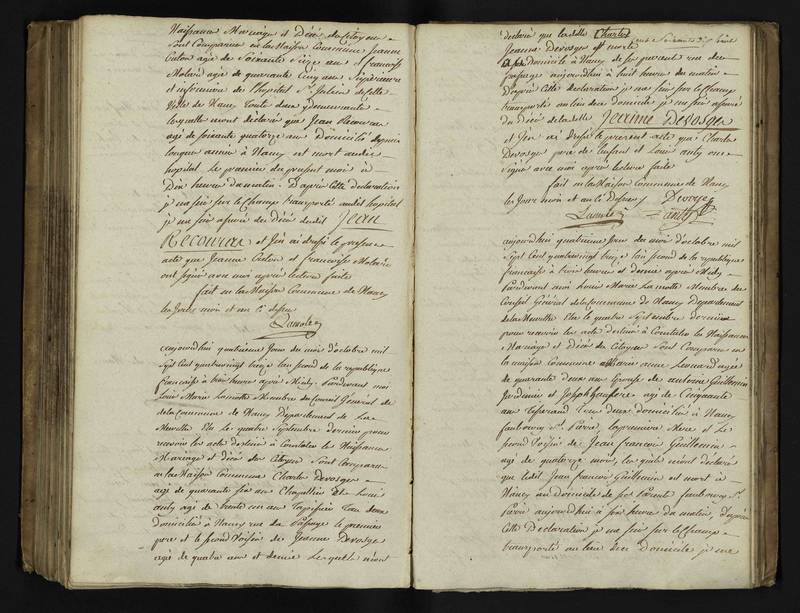 Naissance Mariage et Décé des Citoyens
Sont Comparus en la Maison Commune Jeanne
agé de Soixante Seize ans et françoise
Molard agé de quarante Cinq ans Supérieure
et infirmiere de l'hopital St. Julien de cette
Ville de Nancy toute deux y demeurante
lesquelle mont déclaré que Jean Recouvrau
agé de soixante quatorze ans Domicilié depuis
longue année à Nancy est mort audit
hopital Le premier du present mois à
Dix heures du matin. D'après Cette déclaration
je me suis sur le Champ transporté audit hopital
je me suis assuré du décé dudit Jean
Recouvrau et j'en ai dressé le present
acte que Jeanne et françoise Molard
ont signé avec moi après lecture faite
fait en la Maison Commune de Nancy
les Jour mois et an Ci dessus
Lamotte
aujourd'hui quatrieme Jour du mois d'octobre mil
Sept Cent quatrevingt treize l'an second de la republique
francaise à trois heures après Midy. Pardevant moi
Louis Marie Lamotte Membre du Conseil Général de
de la Commune de Nancy Département de la
Meurthe Elu le quatre Septembre dernier pour
recevoir les acte destiné à Constater les Naissance
Mariage et Décé des Citoyens Sont Comparus
en la Maison Commune Charle Devosge
agé de quarante six ans Chapellier et Louis
anly agé de trente un ans Tapissier tous deux
domicilié à Nancy rue du Passage le premier
pere et le second Voisin de Jeanne Devosge
agé de quatre ans et demie. Lesquels m'ont
déclaré que ladelle Charles
Jeanne Devosge est morte
Domicile à Nancy de ses parants rue du
passage aujourdhui à huit heures du matin
D'après Cette déclaration je me suis sur le Champ
transporté au lieu dudit domicile je me suis assuré
du Décé de ladelle Jeanne Devosge
et J'en ai Dressé le present acte que Charle
Devosge pere de l'enfant et Louis anly ont
Signé avec moi après lecture faite
fait en la Maison Commune de Nancy
les Jour mois et an Ci Dessus Devosge
Lamotte anly
aujourdhui quatrieme Jour du mois d'octobre mil
Sept Cent quatrevingt treize l'an second de la republique
francaise à trois heures et demie après Midy
Pardevant moi Louis Marie Lamotte Membre du
Conseil Général de la Commune de Nancy Département
de la Meurthe Elu le quatre Septembre dernier
pour recevoir les acte destiné à Constater les Naissance
Mariage et Décé des Citoyens Sont Comparus en
la maison Commune Marie anne Leonard agée
de quarante deux ans Epouse de antoine Guillemin
Jardinier et Joseph agé de Cinquante
ans Tisserand tous deux domicilié à Nancy
faubourg St. Pierre, la premiere Mere et le
second Voisin de Jean francois Guillemin
agé de quatorze mois, lesquels m'ont déclaré
que ledit Jean francois Guillemin est mort à
Nancy au Domicile de ses Parents faubourg St.
Pierre aujourdhui à six heures du matin, D'après
Cette Declaration je me suis sur le Champ
transporté au lieu dudit Domicile je me